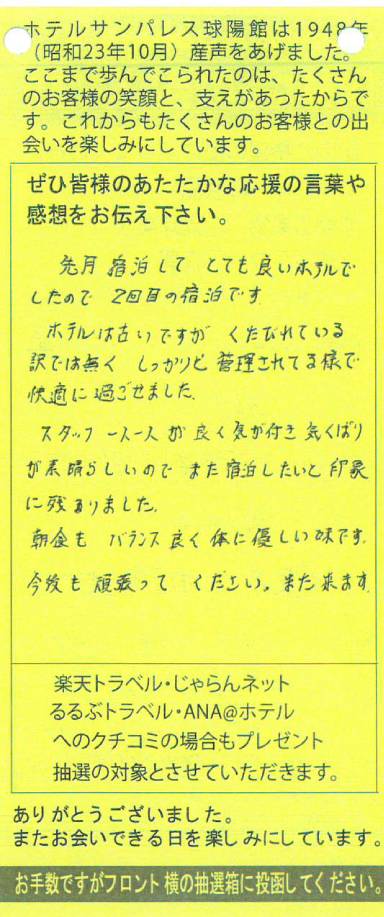 ホテルサンパレス球陽館は1948年
（昭和23年10月）産声をあげました。
ここまで歩んでこられたのは、たくさん
のお客様の笑顔と、支えがあったからで
す。これからもたくさんのお客様との出
会いを楽しみにしています。
ぜひ皆様のあたたかな応援の言葉や
感想をお伝え下さい。
先月 宿泊して とても良いホテルで
したので 2回目の宿泊です
ホテルは古いですが くたびれている
訳では無く しっかりと管理されてる様で
快適に過ごせました。
スタッフ一人一人が良く気が付き気くばり
が素晴らしいので また宿泊したいと印象
に残りました。
朝食も バランス良く体に優しい味です。
今後も頑張って ください。また来ます
楽天トラベル・じゃらんネット
るるぶトラベル・ANA@ホテル
へのクチコミの場合もプレゼント
抽選の対象とさせていただきます。
ありがとうございました。
またお会いできる日を楽しみにしています。
お手数ですがフロント横の抽選箱に投函してください。